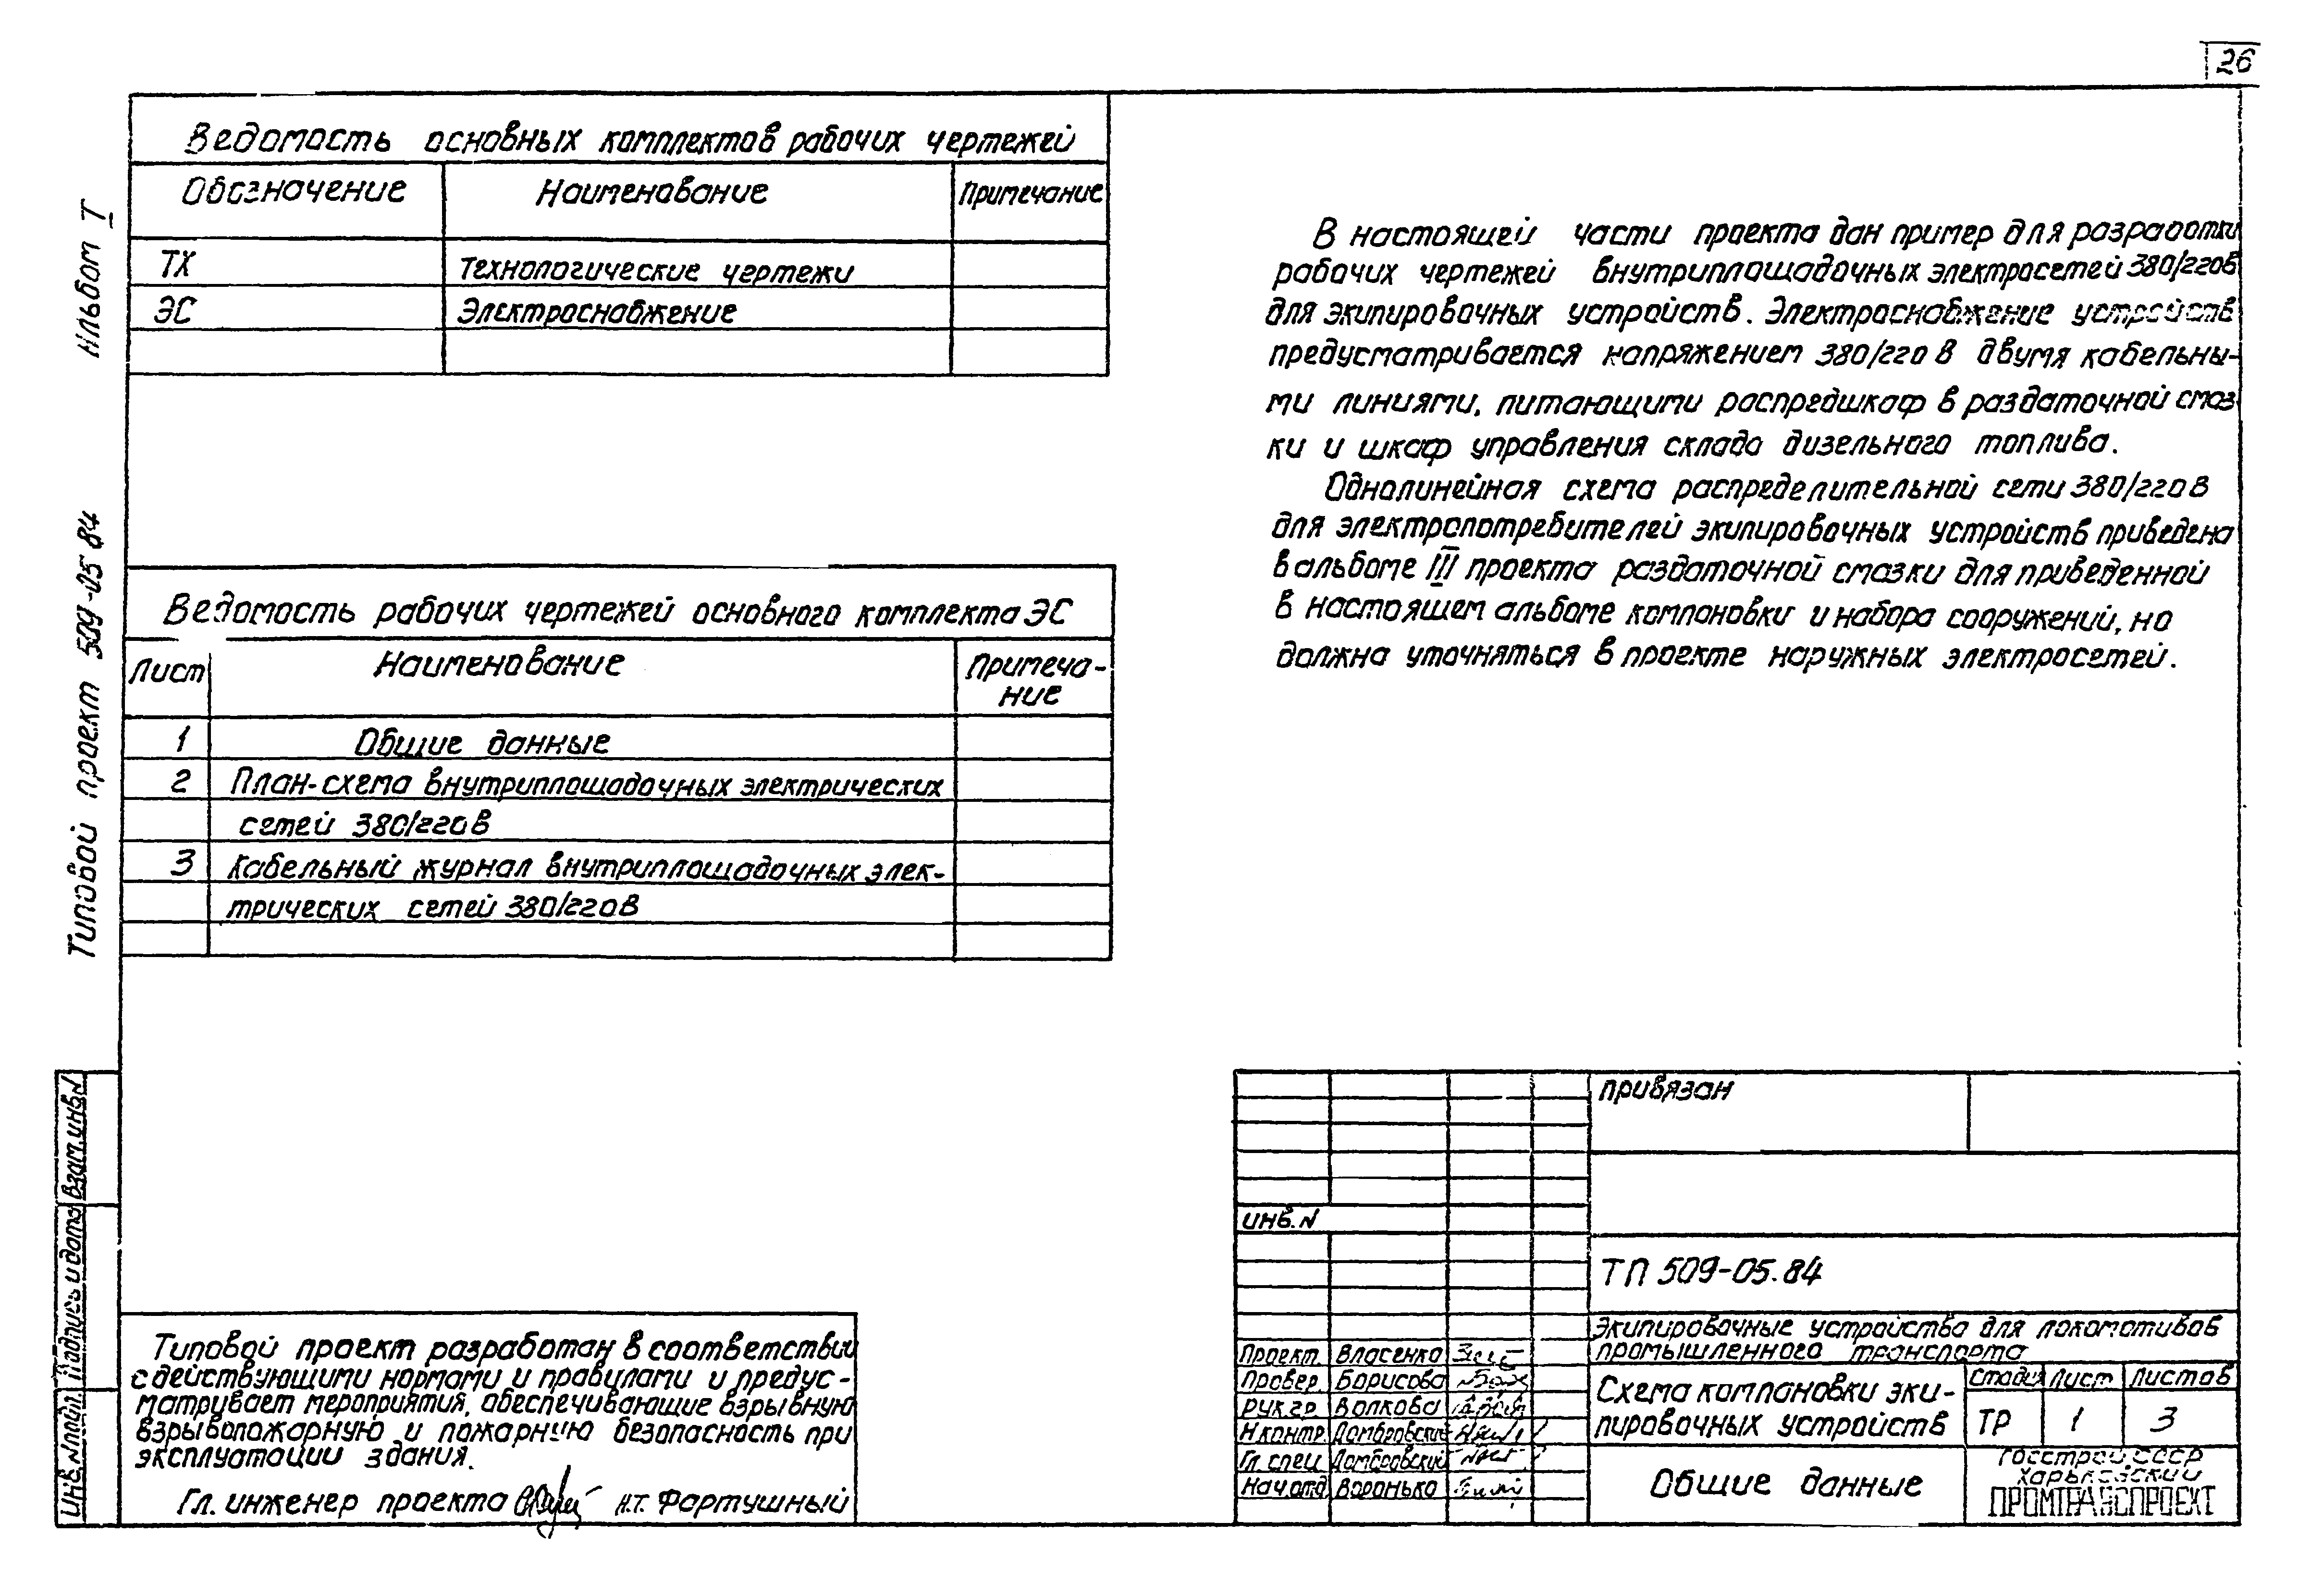 26
Альбом I
Типовой проект 509-05 84
Ведомость основных комплектов рабочих чертежей
Обозначение Наименование Примечание
ТХ Технологические чертежи
ЭС Электроснабжение
Ведомость рабочих чертежей основного комплекта ЭС
Лист Наименование Примеча-
ние
1 Общие данные
2 План-схема внутриплощадочных электрических
сетей 380/220В
3 Кабельный журнал внутриплощадочных элек-
трических сетей 380/220В
В настоящей части проекта дан пример для разработки
рабочих чертежей внутриплощадочных электросетей 380/220В
для экипировочных устройств. Электроснабжение устройств
предусматривается напряжением 380/220 В двумя кабельны-
ми линиями, питающими распредшкаф в раздаточной смаз-
ки и шкаф управления склада дизельного топлива.
Однолинейная схема распределительной сети 380/220В
для электропотребителей экипировочных устройств приведена
в альбоме III проекта раздаточной смазки для приведенной
в настоящем альбоме компоновки и набора сооружений, но
должна уточняться в проекте наружных электросетей.
Взам.инв.N
Подпись и дата
Инв.N подл.
Типовой проект разработан в соответствии
с действующими нормами и правилами и предус-
матривает мероприятия, обеспечивающие взрывную
взрывопожарную и пожарную безопасность при
эксплуатации здания.
Гл. инженер проекта Н.Т. Фартушный
привязан
инв.N
ТП 509-05.84
Экипировочные устройства для локомотивов
промышленного транспорта
Проект. Власенко
Провер. Борисова
Рук.гр. Волкова
Н.контр. Домбровский
Гл. спец. Домбровский
Нач.отд. Воронько
Схема компановки эки-
пировочных устройств
Стадия Лист Листов
ТР 1 3
Общие данные
Госстрой СССР
Харьковский
ПРОМТРАНСПРОЕКТ